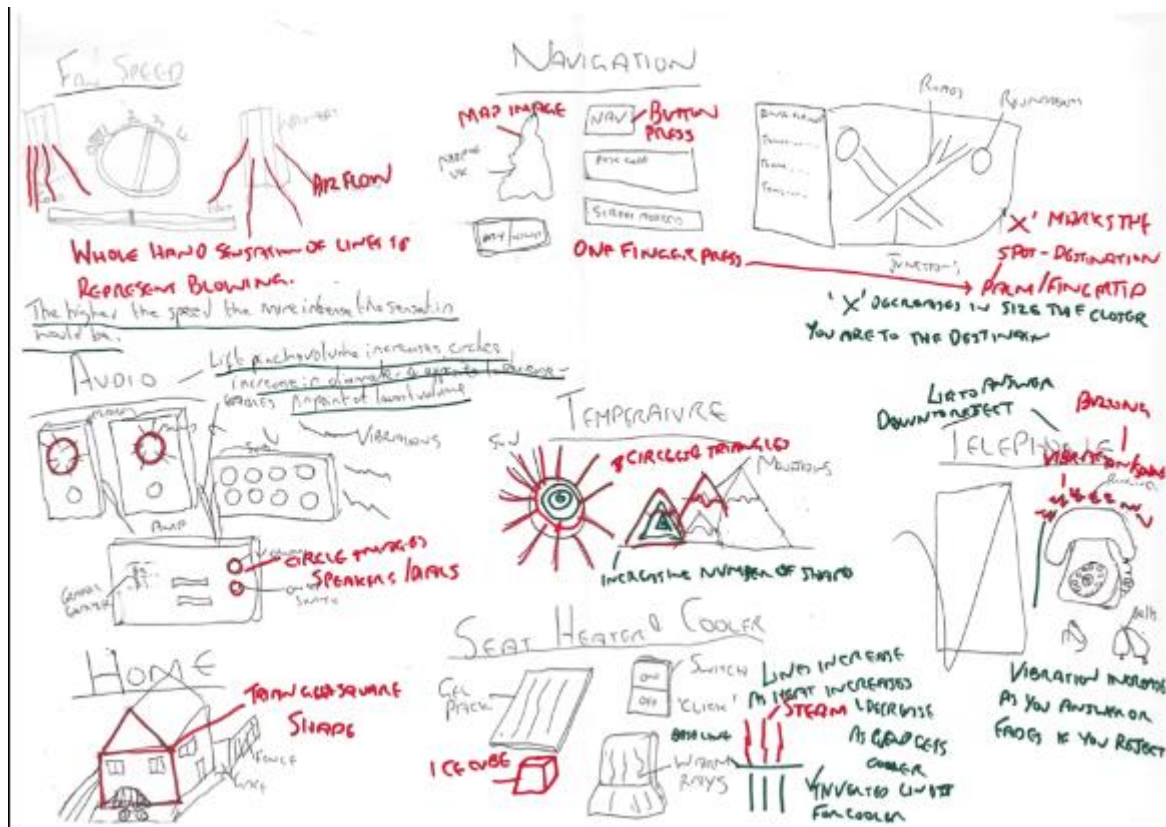 FAN SPEED
2
3
4
AIRFLOW
WHOLE HAND SENSATION OF LINES TO
REPRESENT BLOWING.
The higher the speed the more intense the sensation
would be.
NAVIGATION
MAP IMAGE
UK
NAV
BUTTON
PRESS
POST CODE
ONE FINGER PRESS
ROADS
JUNCTIONS
'X' MARKS THE
SPOT - DESTINATION
PALM/FINGERTIP
'X' DECREASES IN SIZE THE CLOSER
YOU ARE TO THE DESTINATION
AUDIO
Lift pinch volume increases circles
increase in diameter
pinpoint at lowest volume
VIBRATIONS
SUB
AMP
CIRCLE IMAGES
SPEAKERS/DIALS
SWITCH
TEMPERATURE
SUN
CIRCLE TRIANGLES
MOUNTAINS
INCREASING NUMBER OF SHAPE
LIFT TO ANSWER
DOWN TO REJECT
TELEPHONE
VIBRATION
BELLS
VIBRATION INCREASE
AS YOU ANSWER OR
FADES IF YOU REJECT
HOME
TRIANGLE SQUARE
SHAPE
FENCE
SEAT HEATER & COOLER
GEL
PACK
ICE CUBE
ON
OFF
SWITCH
'CLICK'
WARM
RAYS
LINES INCREASE
AS HEAT INCREASES
STEAM
DECREASE
BASELINE
COOLER
INVERTED LINES
FOR COOLER